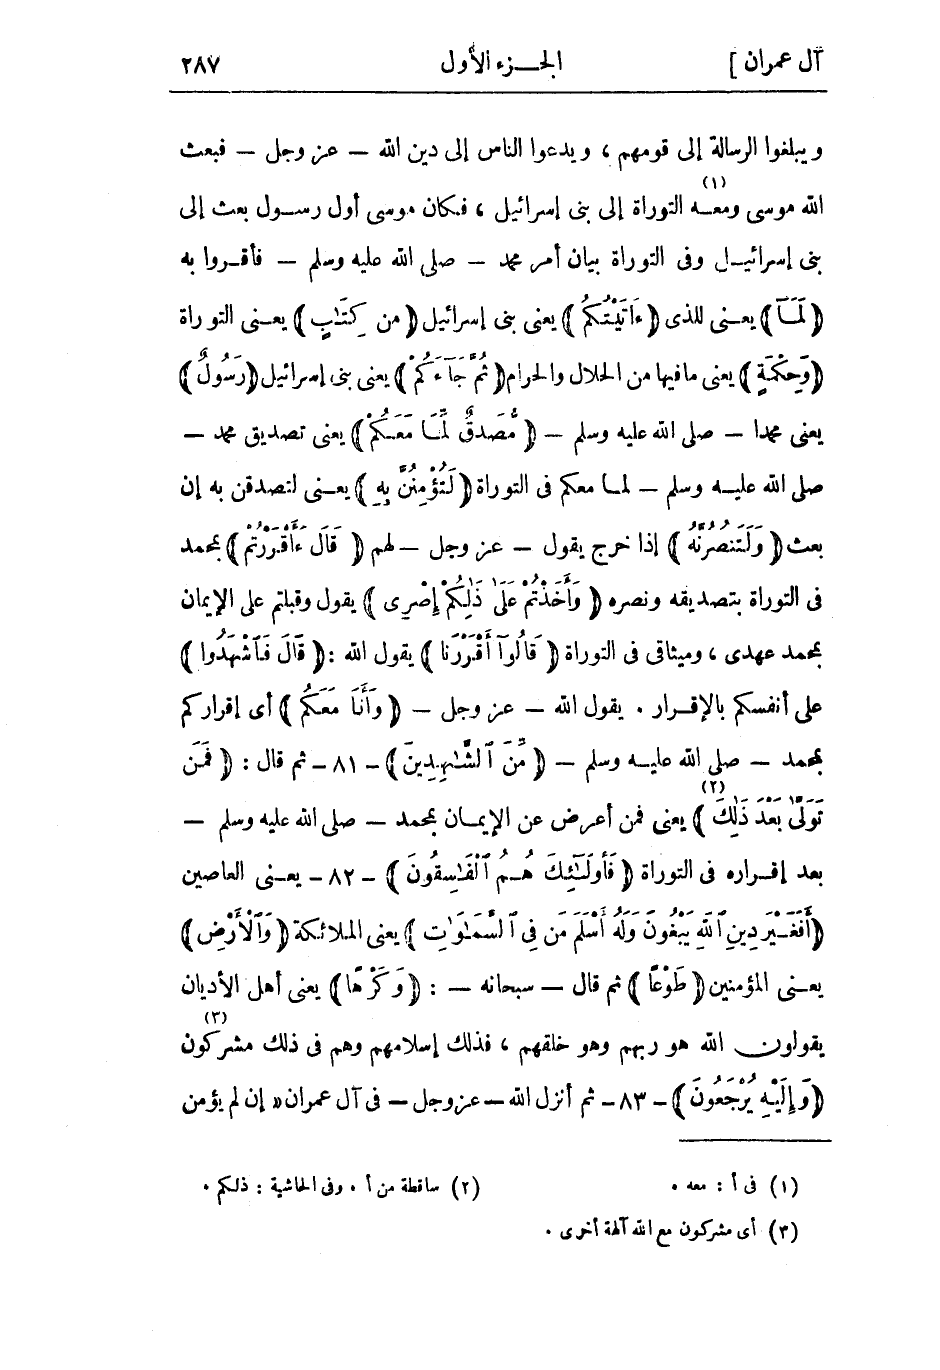 آل عمران ] الجـــزء الأول ٢٨٧
ويبلغوا الرسالة إلى قومهم ، ويدعوا الناس إلى دين الله — عز وجل — فبعث
الله موسى ومعــه (١) التوراة إلى بنى إسرائيل ، فكان موسى أول رســول بعث إلى
بنى إسرائيــل وفى التوراة بيان أمر محمد — صلى الله عليه وسلم — فأقــروا به
﴿ لَمَــآ ﴾ يعــنى للذى ﴿ ءَاتَيْتُكُمْ ﴾ يعنى بنى إسرائيل ﴿ من كِتَـٰبٍ ﴾ يعــنى التوراة
﴿ وَحِكْمَةٍ ﴾ يعنى مافيها من الحلال والحرام ﴿ ثُمَّ جَآءَكُمْ ﴾ يعنى بنى إسرائيل ﴿ رَسُولٌ ﴾
يعنى محمدا — صلى الله عليه وسلم — ﴿ مُّصَدقٌ لِّمَـا مَعَـكُمْ ﴾ يعنى تصديق محمد —
صلى الله عليــه وسلم — لمـا معكم فى التوراة ﴿ لَتُؤْمِنُنَّ بِهِ ﴾ يعــنى لتصدقن به إن
بعث ﴿ وَلَتَنصُرُنَّهُ ﴾ إذا خرج يقول — عز وجل — لهم ﴿ قَالَ ءَأَقْرَرْتُمْ ﴾ بمحمد
فى التوراة بتصديقه ونصره ﴿ وَأَخَذْتُمْ عَلَىٰ ذَٰلِكُمْ إِصْرِى ﴾ يقول وقبلتم على الإيمان
بمحمد عهدى ، وميثاقى فى التوراة ﴿ قَالُوٓا أَقْرَرْنَا ﴾ يقول الله : ﴿ قَالَ فَٱشْهَدُوا ﴾
على أنفسكم بالإقــرار . يقول الله — عز وجل — ﴿ وَأَنَا مَعَكُم ﴾ أى إقراركم
بمحمد — صلى الله عليــه وسلم — ﴿ مِّنَ ٱلشَّـٰهِدِينَ ﴾ — ٨١ — ثم قال : ﴿ فَمَن
تَوَلَّىٰ بَعْدَ ذَٰلِكَ (٢) ﴾ يعنى فمن أعرض عن الإيمــان بمحمد — صلى الله عليه وسلم —
بعد إقــراره فى التوراة ﴿ فَأُولَـٰٓئِكَ هُـمُ ٱلْفَـٰسِقُونَ ﴾ — ٨٢ — يعــنى العاصين
﴿ أَفَغَــيْرَ دِينِ ٱللَّهِ يَبْغُونَ وَلَهُ أَسْلَمَ مَن فِى ٱلسَّمَـٰوَٰتِ ﴾ يعنى الملائكة ﴿ وَٱلْأَرْضِ ﴾
يعــنى المؤمنين ﴿ طَوْعًا ﴾ ثم قال — سبحانه — : ﴿ وَكَرْهًا ﴾ يعنى أهل الأديان
يقولون الله هو ربهم وهو خلقهم ، فذلك إسلامهم وهم فى ذلك مشركون (٣)
﴿ وَإِلَيْـهِ يُرْجَعُونَ ﴾ — ٨٣ — ثم أنزل الله — عز وجل — فى آل عمران « إن لم يؤمن
(١) فى أ : معه . (٢) ساقطة من أ . وفى الحاشية : ذلكم .
(٣) أى مشركون مع الله آلهة أخرى .